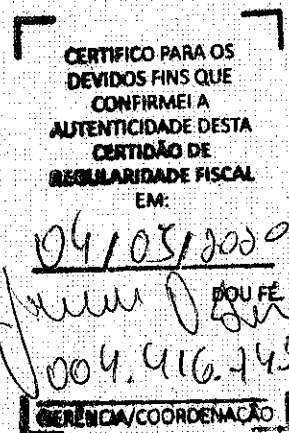 CERTIFICO PARA OS
DEVIDOS FINS QUE
CONFIRMEI A
AUTENTICIDADE DESTA
CERTIDÃO DE
REGULARIDADE FISCAL
EM:
04/05/2020
DOU FÉ
004.416.745
GERÊNCIA/COORDENAÇÃO